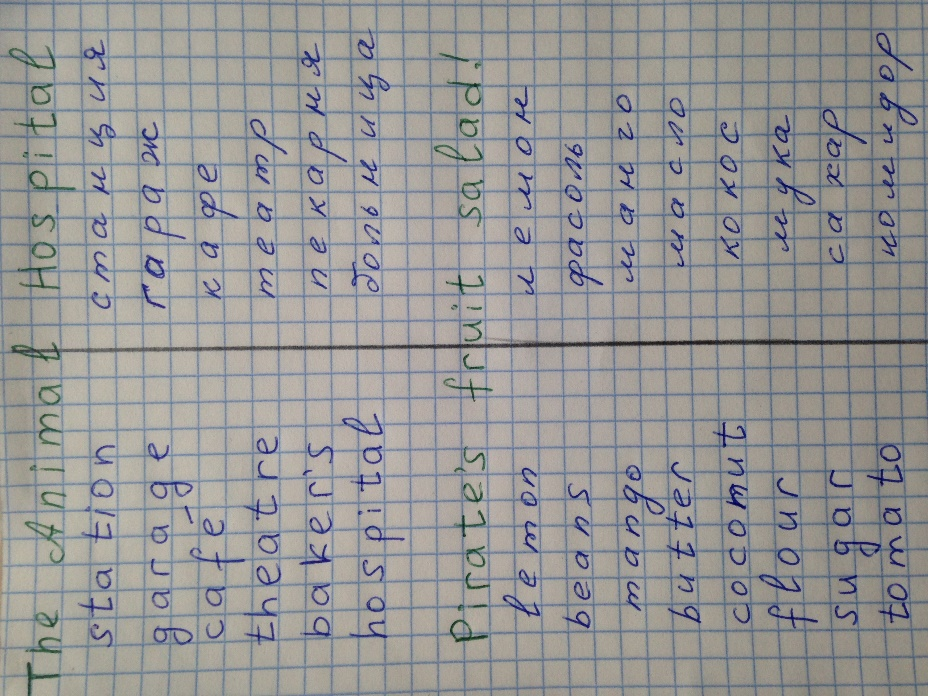 The Animal Hospital
station станция
garage гараж
cafe- кафе
theatre театр
baker's пекарня
hospital больница
Pirate's fruit salad!
lemon лемон
beans фасоль
mango манго
butter масло
cocomut кокос
flour мука
sugar сахар
tomato помидор